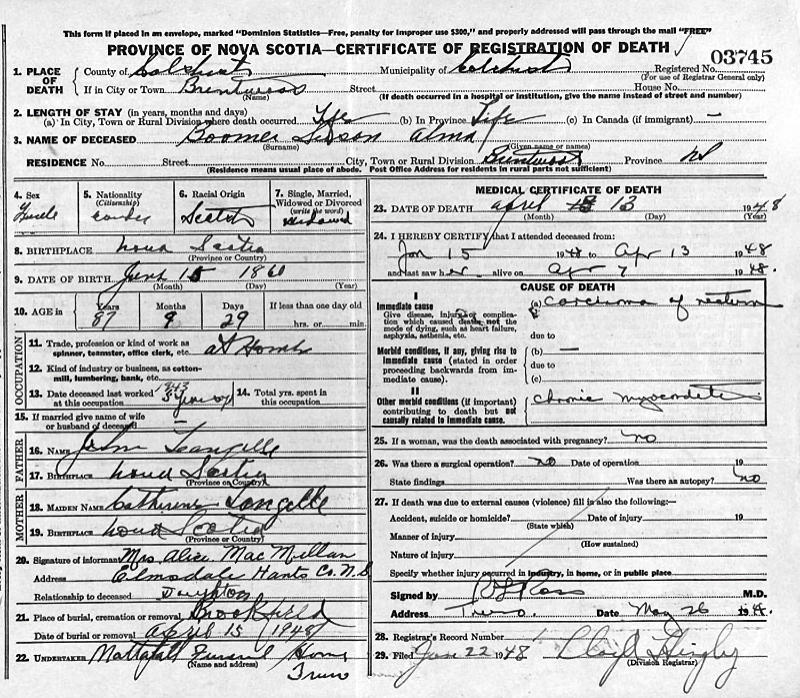 This form if placed in an envelope, marked "Dominion Statistics—Free, penalty for improper use $300," and properly addressed will pass through the mail "FREE"
PROVINCE OF NOVA SCOTIA—CERTIFICATE OF REGISTRATION OF DEATH
03745
1. PLACE OF DEATH County of Colchester Municipality of Colchester Registered No.
(For use of Registrar General only)
If in City or Town Brentwood Street House No.
(Name) (If death occurred in a hospital or institution, give the name instead of street and number)
2. LENGTH OF STAY (in years, months and days)
(a) In City, Town or Rural Division where death occurred Life (b) In Province Life (c) In Canada (if immigrant) —
3. NAME OF DECEASED Boomer Alma
(Surname) (Given name or names)
RESIDENCE No. Street City, Town or Rural Division Brentwood Province NS
(Residence means usual place of abode. Post Office Address for residents in rural parts not sufficient)
4. Sex Female
5. Nationality (Citizenship)
6. Racial Origin Scotch
7. Single, Married, Widowed or Divorced (write the word) Widowed
8. BIRTHPLACE Nova Scotia
(Province or Country)
9. DATE OF BIRTH June 15 1860
(Month) (Day) (Year)
10. AGE in Years 87 Months 9 Days 29 If less than one day old hrs. or min.
OCCUPATION
11. Trade, profession or kind of work as spinner, teamster, office clerk, etc. at Home
12. Kind of industry or business, as cotton-mill, lumbering, bank, etc.
13. Date deceased last worked at this occupation 1943
14. Total yrs. spent in this occupation
15. If married give name of wife or husband of deceased —
FATHER
16. NAME John Langelle
17. BIRTHPLACE Nova Scotia
(Province or Country)
MOTHER
18. MAIDEN NAME Catherine Langelle
19. BIRTHPLACE Nova Scotia
(Province or Country)
20. Signature of informant Mrs Alice MacMillan
Address Elmsdale Hants Co. N.S
Relationship to deceased Daughter
21. Place of burial, cremation or removal Brookfield
Date of burial or removal April 15 (1948)
22. UNDERTAKER Mattatall Funeral Home
(Name and address) Truro
MEDICAL CERTIFICATE OF DEATH
23. DATE OF DEATH April 13 1948
(Month) (Day) (Year)
24. I HEREBY CERTIFY that I attended deceased from:
Jan 15 1948 to Apr 13 1948
and last saw her alive on Apr 7 1948.
CAUSE OF DEATH
I
Immediate cause (a) Carcinoma of rectum
Give disease, injury or complication which caused death, not the mode of dying, such as heart failure, asphyxia, asthenia, etc.
due to
Morbid conditions, if any, giving rise to immediate cause (stated in order proceeding backwards from immediate cause). (b) —
due to
(c)
II
Other morbid conditions (if important) contributing to death but not causally related to immediate cause. Chronic myocarditis
25. If a woman, was the death associated with pregnancy? no
26. Was there a surgical operation? no Date of operation 19
State findings Was there an autopsy? no
27. If death was due to external causes (violence) fill in also the following:—
Accident, suicide or homicide? Date of injury 19
(State which)
Manner of injury
(How sustained)
Nature of injury
Specify whether injury occurred in industry, in home, or in public place
Signed by Ross M.D.
Address Truro. Date May 26 1948.
28. Registrar's Record Number 1
29. Filed Jan 22 1948
(Division Registrar)